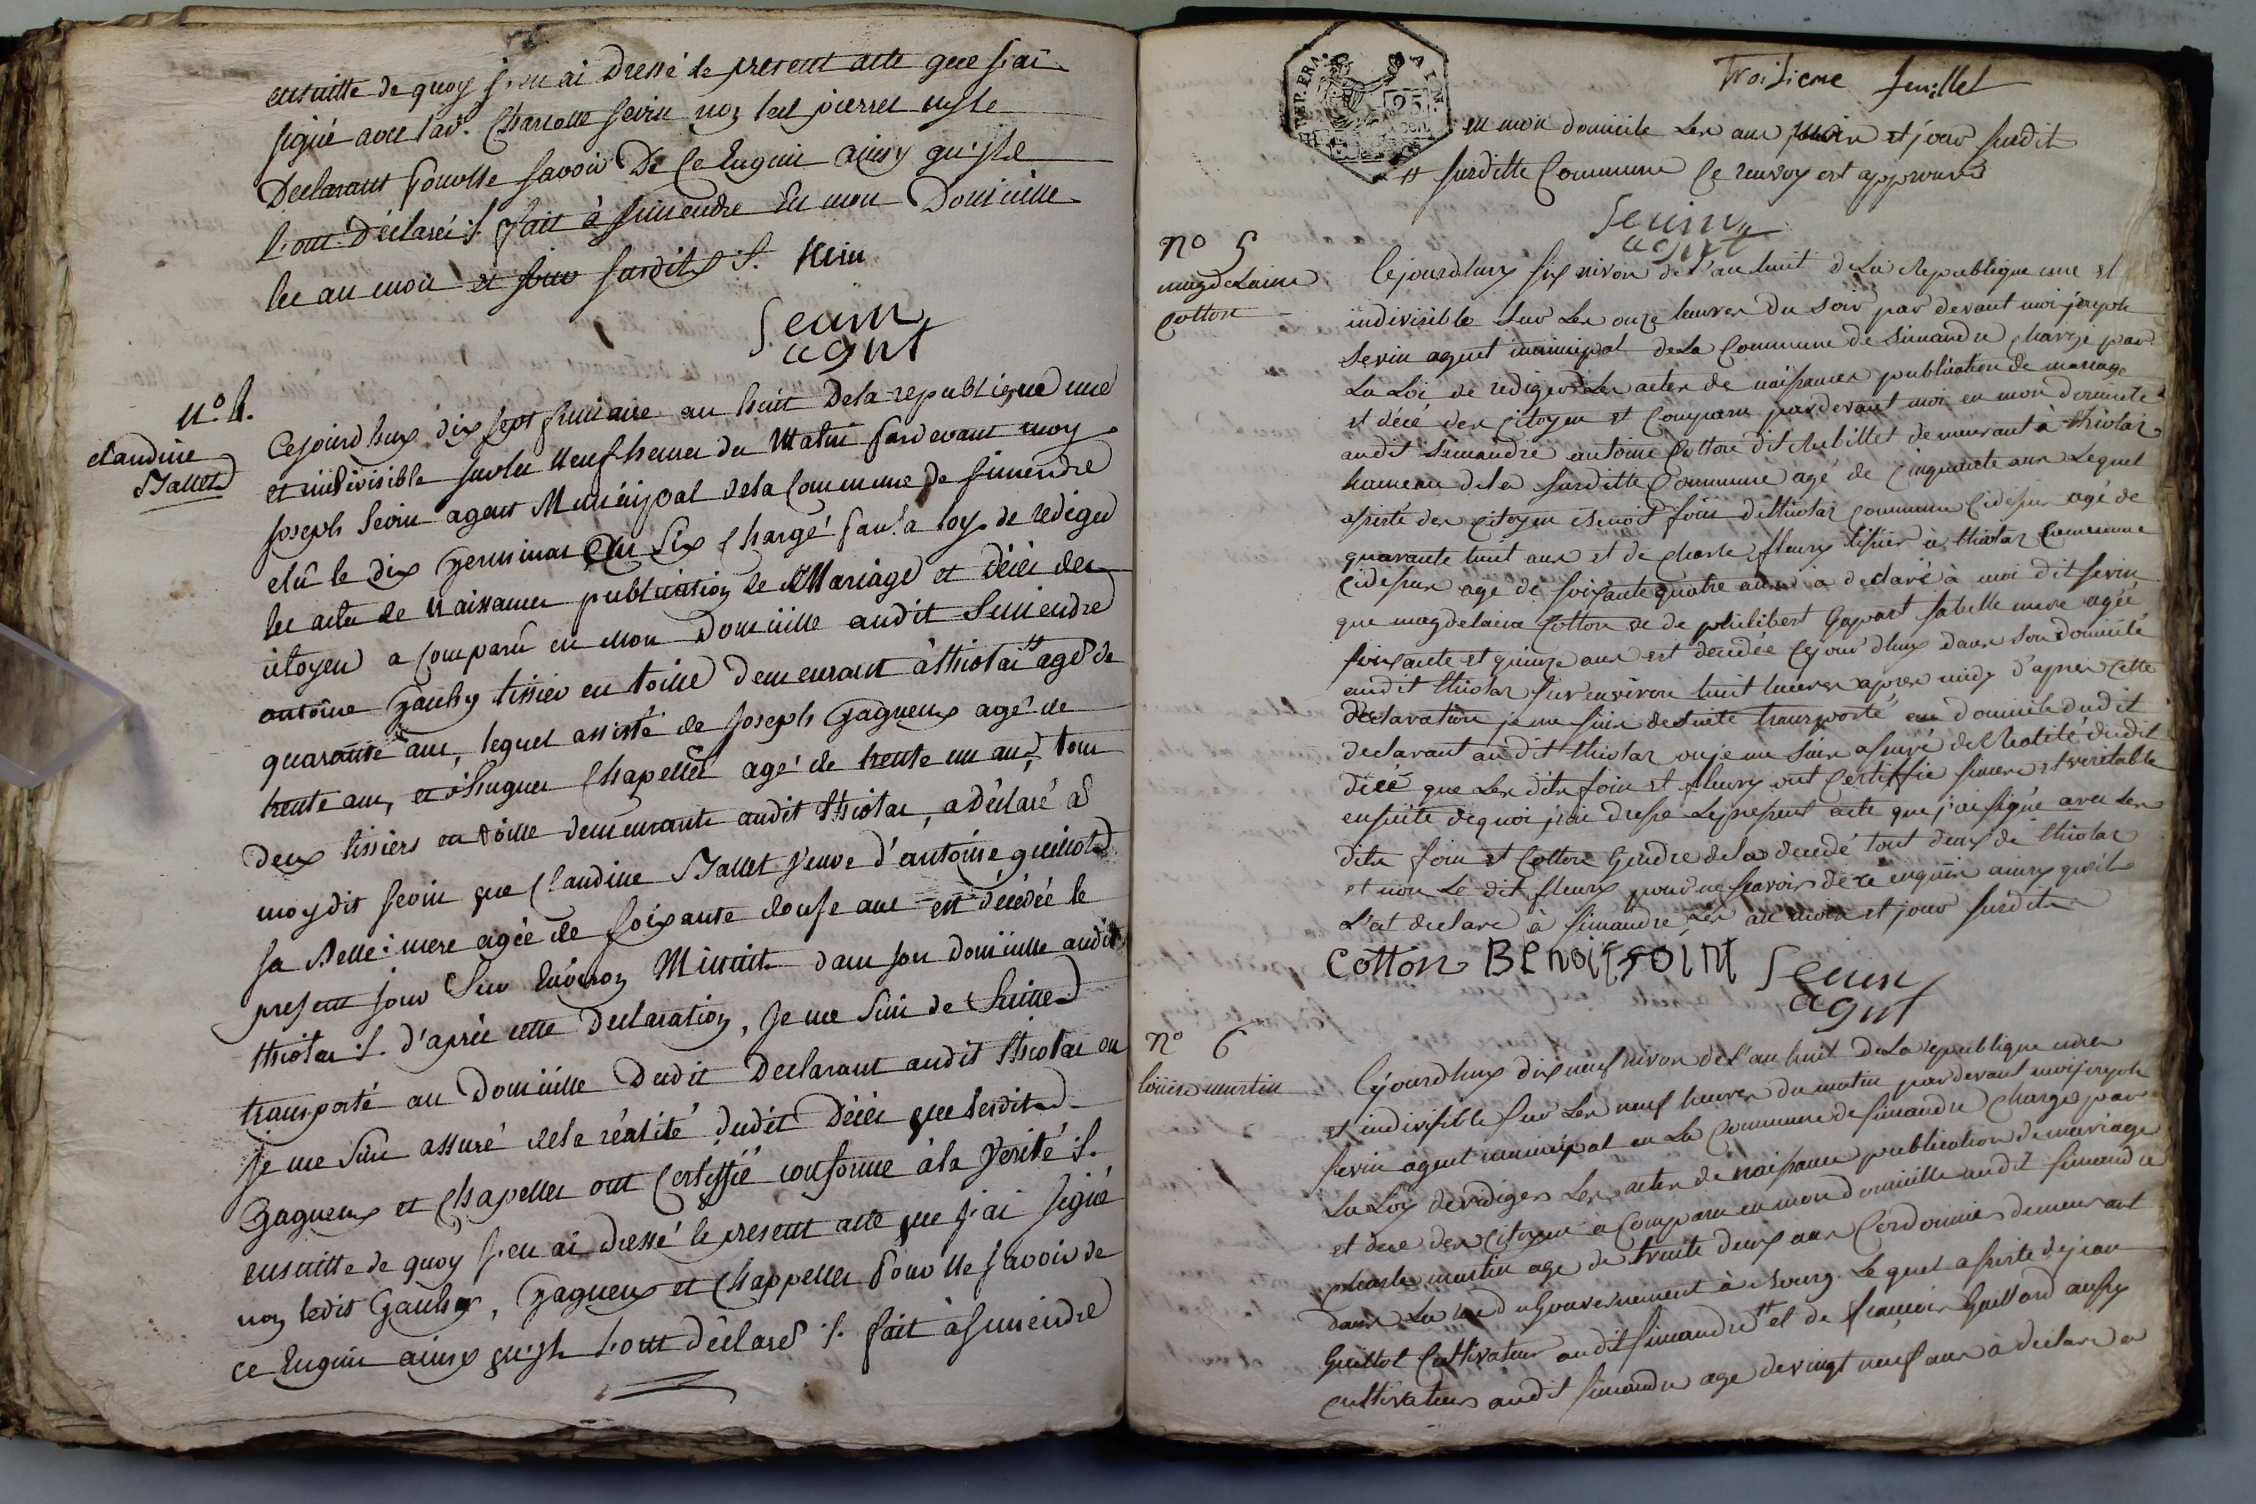 ensuitte de quoy j'en ai dressé le present acte que j'ai
signé avec lad. Charlotte sevin non led pierrel
Declarant pour ne savoir De Ce Enquis ainsy qu'ils
l'ont déclaré :/. fait à simendre En mon Domicille
les an mois et jour susdits :/.
Sevin
agnt
n° 4.
claudine
Ballet
Cejourdhuy dix sept frimaire an huit De la republique une
et indivisible sur les neuf heures du Matin pardevant moy
joseph Sevin agent Municipal de la Commune de simendre
elû le dix germinal an six chargé par la loy de rediger
les actes de naissances publication de Mariage et décès des
citoyens a comparû en mon Domicille audit Simendre
antoine gauthy tissier en toille demeurant à thiolas agé de
quarante ans, lequel assisté de joseph gagneux agé de
trente ans, et d'hugues Chapellet agé de trente un ans, tous
deux tissiers en toille demeurants audit thiolas, a déclaré à
moy dit sevin que Claudine Ballet veuve d'antoine guillot
sa Belle-mere agée de soixante douse ans est décédée le
present jour Sur Environ Minuit dans son domicille audit
thiolas :/. d'après cette Declaration, je me suis de Suitte
transporté au Domicille Dudit Declarant audit thiolas ou
je me suis assuré de la réalité dudit Décès que lesdits
Gagneux et Chapellet ont Certiffié conforme à la verité :/.
ensuitte de quoy j'en ai dressé le present acte que j'ai signé
non ledit Gauthy, Gagneux et Chappellet pour ne savoir de
ce Enquis ainsy qu'ils l'ont déclaré :/. fait à simendre
Troisieme feuillet
en mon domicile Les ans mois et jour susdit
# susditte Commune Ce renvoy est approuvé
Sevin
agnt
n° 5
magdelaine
Cotton
Cejourdhuy six nivos de l'an huit de la Republique une et
indivisible sur Les onze heures du soir par devant moi joseph
Sevin agent municipal de la Commune de Simandre chargé par
La Loi de rediger Les actes de naissances publication de mariage
et décé des citoyens est Comparu pardevant moi en mon domicile
audit Simandre antoine Cotton dit Rubillet demeurant à thiolas
hameau de la susditte Commune agé de Cinquante ans Lequel
assisté des citoyens Benoit foin de thiolas Commune Cidessus agé de
quarante huit ans et de Charle fleury tissier à thiolas Commune
Cidessus agé de soixante quatre ans a declaré à moi dit sevin
que magdelaine Cotton ve de philibert Gapart sa belle mere agée
soixante et quinze ans est decedée Cejourdhuy dans son domicile
audit thiolas sur environ huit heures apres midy d'apres Cette
declaration je me suis de suite transporté au domicile dudit
declarant audit thiolas ou je me suis assuré de Realité dudit
décé que Les dits foin et fleury ont Certiffie sincere et veritable
ensuite dequoi j'ai dressé Le present acte que j'ai signé avec Les
dits foin et Cotton Gendre de la decedé tout deux de thiolas
et non Le dit fleury pour ne savoir de ce enquis ainsy qu'il
L'at declaré à simandre Les an mois et jour susdits
Cotton BEnoit foint Sevin
agnt
n° 6
Loüise martin
Cejourdhuy dix neuf nivos de l'an huit de la republique une
et indivisible sur Les neuf heures du matin pardevant moi joseph
Sevin agent municipal en La Commune de simandre Chargé par
La Loy de rediger Les actes de naissance publication de mariage
et decé des Citoyens a Comparu en mon domicille audit simandre
Charle martin agé de trente deux ans Cordonnier demeurant
dans La rue du Gouvernement à Bourg. Le quel assisté de jean
Guillot Cultivateur audit simandre # et de françois Guillard aussy
Cultivateur audit simandre age de vingt neuf ans a declaré a